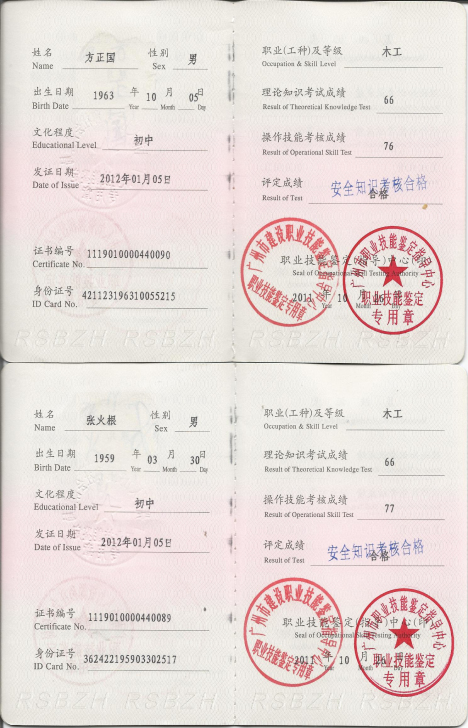 姓名 方正国 性别 男
Name Sex
出生日期 1963 年 10 月 05日
Birth Date Year Month Day
文化程度 初中
Educational Level
发证日期 2012年01月05日
Date of Issue
证书编号 1119010000440090
Certificate No.
身份证号 421123196310055215
ID Card No.
职业(工种)及等级 木工
Occupation & Skill Level
理论知识考试成绩 66
Result of Theoretical Knowledge Test
操作技能考核成绩 76
Result of Operational Skill Test
评定成绩 安全知识考核合格
合格
Result of Test
广州市建设职业技能
职业技能鉴定专用章
职业技能鉴定(指导)中心(印)
Seal of Occupational Skill Testing Authority
2011 年 10 月
Year Month Day
广州市职业技能鉴定指导中心
职业技能鉴定
专用章
RSBZH RSBZH
姓名 张火根 性别 男
Name Sex
出生日期 1959 年 03 月 30日
Birth Date Year Month Day
文化程度 初中
Educational Level
发证日期 2012年01月05日
Date of Issue
证书编号 1119010000440089
Certificate No.
身份证号 362422195903302517
ID Card No.
职业(工种)及等级 木工
Occupation & Skill Level
理论知识考试成绩 66
Result of Theoretical Knowledge Test
操作技能考核成绩 77
Result of Operational Skill Test
评定成绩 安全知识考核合格
合格
Result of Test
广州市建设职业技能
职业技能鉴定专用章
职业技能鉴定(指导)中心(印)
Seal of Occupational Skill Testing Authority
2011 年 10 月
Year Month Day
广州市职业技能鉴定指导中心
职业技能鉴定
专用章
RSBZH RSBZH